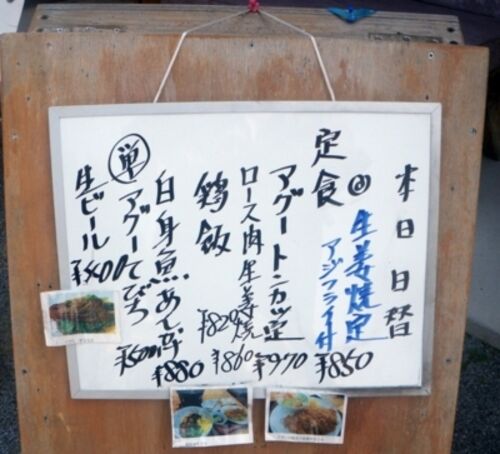 本日日替
定食
@ 生姜焼定
アジフライ付
¥850
アグートンカツ定
¥970
ロース肉生姜焼
¥860
鶏飯
¥820
白身魚あん
¥880
単 アグーてびち
¥500
生ビール
¥400